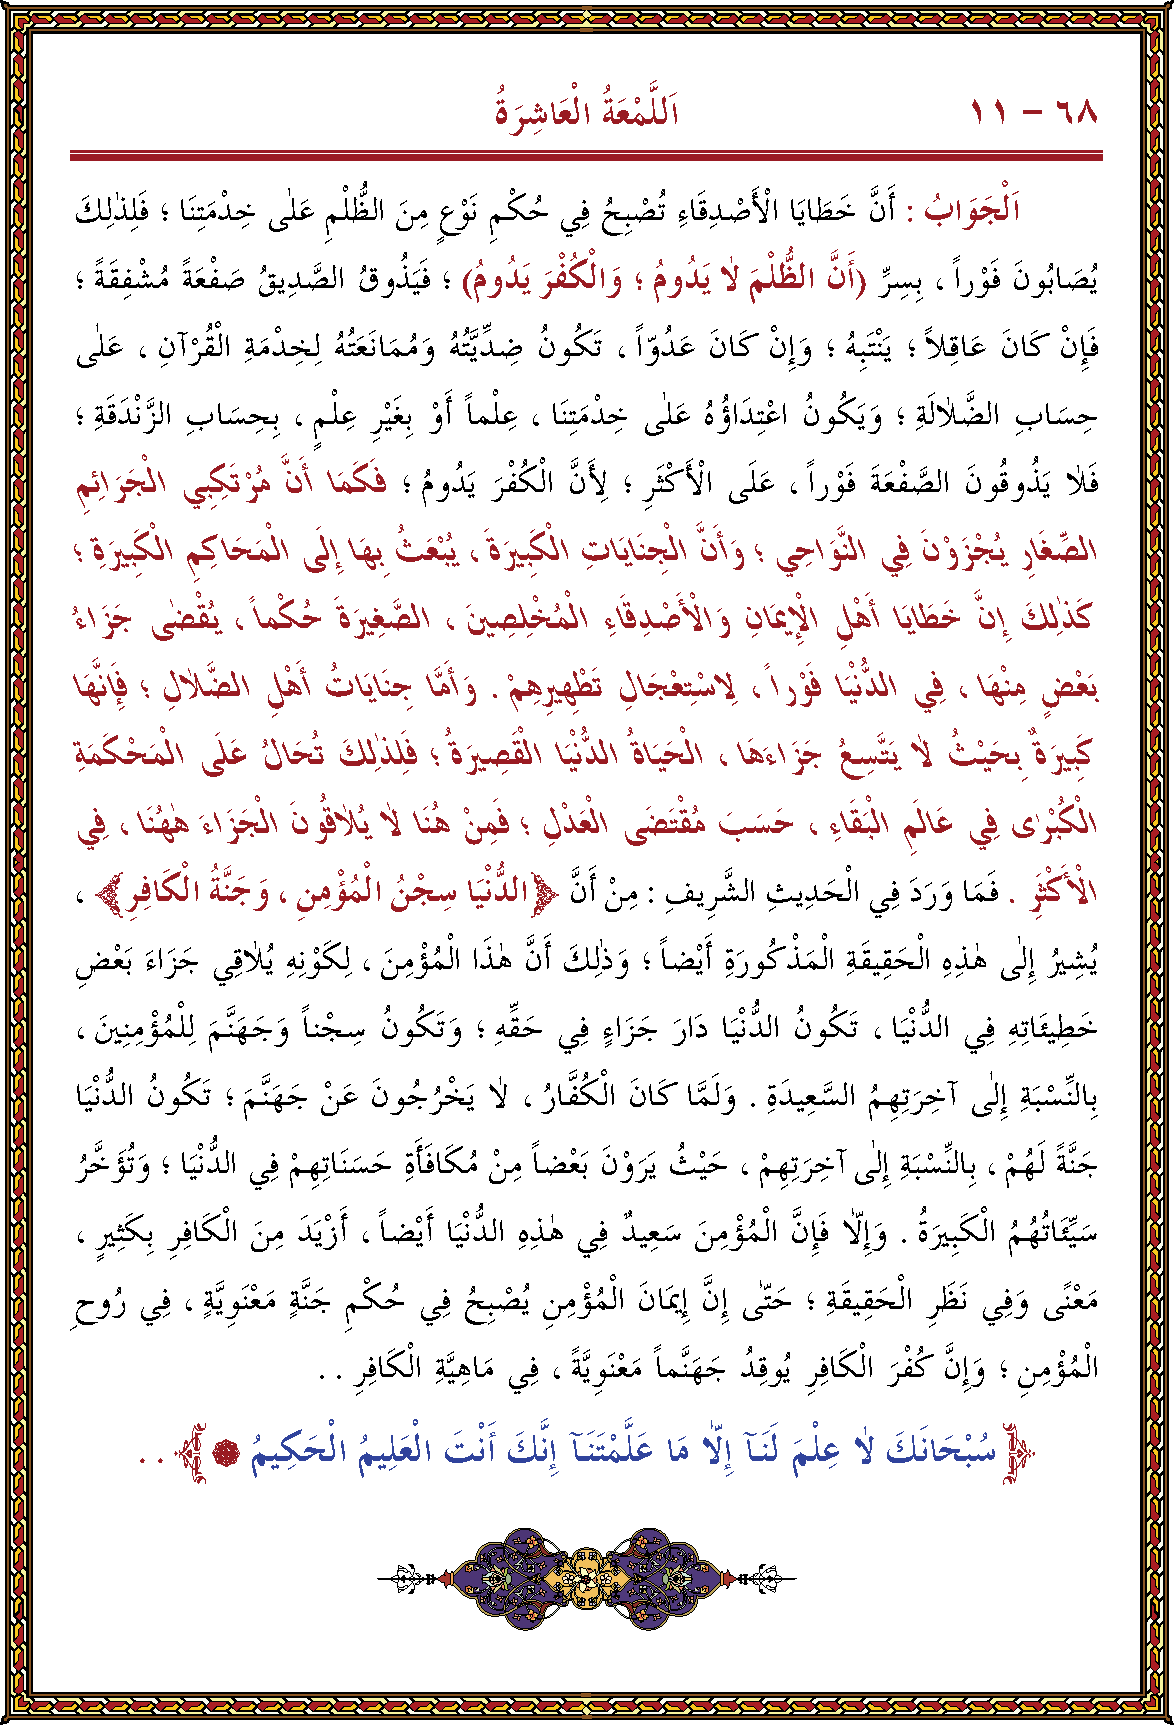 ٦٨ - ١١
اَللَّمْعَةُ الْعَاشِرَةُ
اَلْجَوَابُ : أَنَّ خَطَايَا الْأَصْدِقَاءِ تُصْبِحُ فِي حُكْمِ نَوْعٍ مِنَ الظُّلْمِ عَلٰى خِدْمَتِنَا ؛ فَلِذٰلِكَ
يُصَابُونَ فَوْراً ، بِسِرِّ (أَنَّ الظُّلْمَ لَا يَدُومُ ؛ وَالْكُفْرَ يَدُومُ) ؛ فَيَذُوقُ الصَّدِيقُ صَفْعَةً مُشْفِقَةً ؛
فَإِنْ كَانَ عَاقِلاً ؛ يَنْتَبِهُ ؛ وَإِنْ كَانَ عَدُوّاً ، تَكُونُ ضِدِّيَّتُهُ وَمُمَانَعَتُهُ لِخِدْمَةِ الْقُرْآنِ ، عَلٰى
حِسَابِ الضَّلَالَةِ ؛ وَيَكُونُ اعْتِدَاؤُهُ عَلٰى خِدْمَتِنَا ، عِلْماً أَوْ بِغَيْرِ عِلْمٍ ، بِحِسَابِ الزَّنْدَقَةِ ؛
فَلَا يَذُوقُونَ الصَّفْعَةَ فَوْراً ، عَلَى الْأَكْثَرِ ؛ لِأَنَّ الْكُفْرَ يَدُومُ ؛ فَكَمَا أَنَّ مُرْتَكِبِي الْجَرَائِمِ
الصِّغَارِ يُجْزَوْنَ فِي النَّوَاحِي ؛ وَأَنَّ الْجِنَايَاتِ الْكَبِيرَةَ ، يُبْعَثُ بِهَا إِلَى الْمَحَاكِمِ الْكَبِيرَةِ ؛
كَذٰلِكَ إِنَّ خَطَايَا أَهْلِ الْإِيمَانِ وَالْأَصْدِقَاءِ الْمُخْلِصِينَ ، الصَّغِيرَةَ حُكْماً ، يُقْضٰى جَزَاءُ
بَعْضٍ مِنْهَا ، فِي الدُّنْيَا فَوْراً ، لِاسْتِعْجَالِ تَطْهِيرِهِمْ . وَأَمَّا جِنَايَاتُ أَهْلِ الضَّلَالِ ؛ فَإِنَّهَا
كَبِيرَةٌ بِحَيْثُ لَا يَتَّسِعُ جَزَاءَهَا ، الْحَيَاةُ الدُّنْيَا الْقَصِيرَةُ ؛ فَلِذٰلِكَ تُحَالُ عَلَى الْمَحْكَمَةِ
الْكُبْرٰى فِي عَالَمِ الْبَقَاءِ ، حَسَبَ مُقْتَضَى الْعَدْلِ ؛ فَمِنْ هُنَا لَا يُلَاقُونَ الْجَزَاءَ هٰهُنَا ، فِي
الْأَكْثَرِ . فَمَا وَرَدَ فِي الْحَدِيثِ الشَّرِيفِ : مِنْ أَنَّ ﴿الدُّنْيَا سِجْنُ الْمُؤْمِنِ ، وَجَنَّةُ الْكَافِرِ﴾ ،
يُشِيرُ إِلٰى هٰذِهِ الْحَقِيقَةِ الْمَذْكُورَةِ أَيْضاً ؛ وَذٰلِكَ أَنَّ هٰذَا الْمُؤْمِنَ ، لِكَوْنِهِ يُلَاقِي جَزَاءَ بَعْضِ
خَطِيئَاتِهِ فِي الدُّنْيَا ، تَكُونُ الدُّنْيَا دَارَ جَزَاءٍ فِي حَقِّهِ ؛ وَتَكُونُ سِجْناً وَجَهَنَّمَ لِلْمُؤْمِنِينَ ،
بِالنِّسْبَةِ إِلٰى آخِرَتِهِمُ السَّعِيدَةِ . وَلَمَّا كَانَ الْكُفَّارُ ، لَا يَخْرُجُونَ عَنْ جَهَنَّمَ ؛ تَكُونُ الدُّنْيَا
جَنَّةً لَهُمْ ، بِالنِّسْبَةِ إِلٰى آخِرَتِهِمْ ، حَيْثُ يَرَوْنَ بَعْضاً مِنْ مُكَافَأَةِ حَسَنَاتِهِمْ فِي الدُّنْيَا ؛ وَتُؤَخَّرُ
سَيِّئَاتُهُمُ الْكَبِيرَةُ . وَإِلَّا فَإِنَّ الْمُؤْمِنَ سَعِيدٌ فِي هٰذِهِ الدُّنْيَا أَيْضاً ، أَزْيَدَ مِنَ الْكَافِرِ بِكَثِيرٍ ،
مَعْنًى وَفِي نَظَرِ الْحَقِيقَةِ ؛ حَتّٰى إِنَّ إِيمَانَ الْمُؤْمِنِ يُصْبِحُ فِي حُكْمِ جَنَّةٍ مَعْنَوِيَّةٍ ، فِي رُوحِ
الْمُؤْمِنِ ؛ وَإِنَّ كُفْرَ الْكَافِرِ يُوقِدُ جَهَنَّماً مَعْنَوِيَّةً ، فِي مَاهِيَّةِ الْكَافِرِ . .
﴿سُبْحَانَكَ لَا عِلْمَ لَنَآ إِلَّا مَا عَلَّمْتَنَآ إِنَّكَ أَنْتَ الْعَلِيمُ الْحَكِيمُ﴾ . .